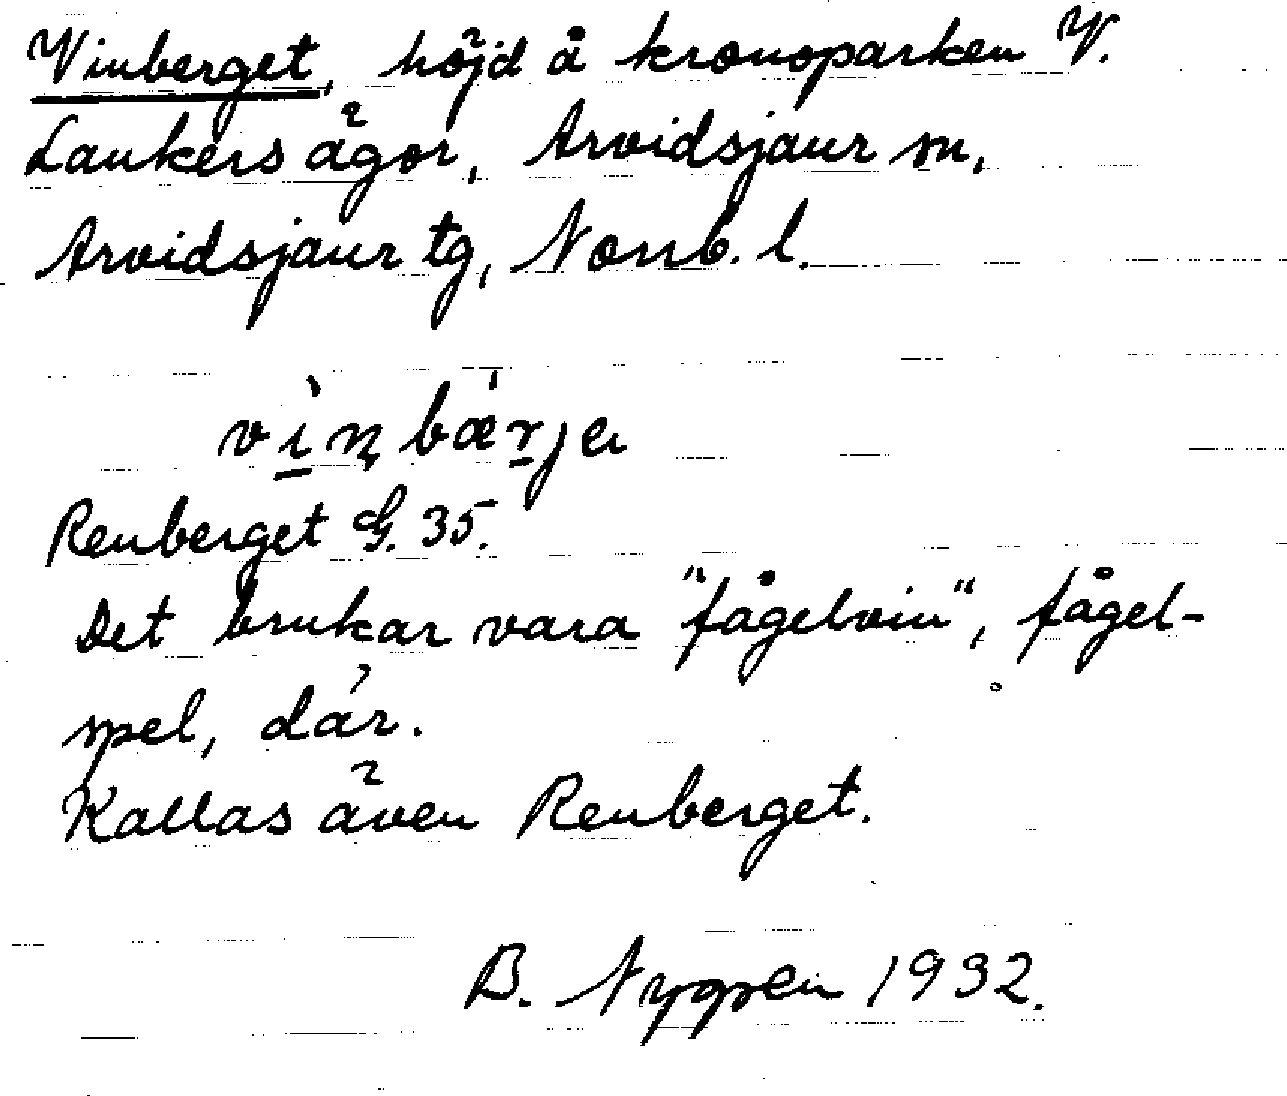 Vinberget, höjd å kronoparken V.
Laukers ägor, Arvidsjaur sn,
Arvidsjaur tg, Norrb. l.
vìṉbær̲ja
Renberget G. 35.
Det brukar vara "fågelvin", fågel-
spel, där.
Kallas även Renberget.
B. Nygren 1932.